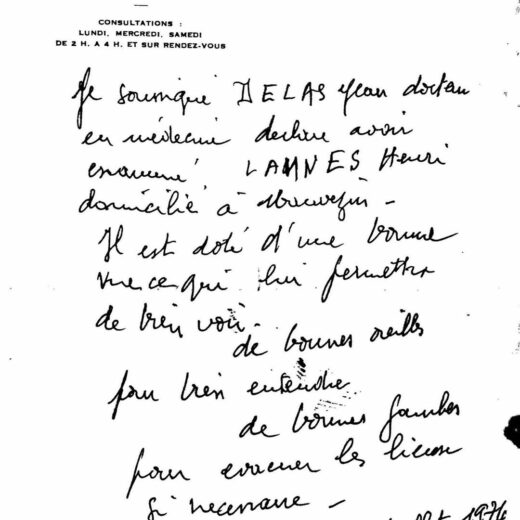 CONSULTATIONS :
LUNDI, MERCREDI, SAMEDI
DE 2 H. A 4 H. ET SUR RENDEZ-VOUS
Je soussigné DELAS Jean docteur
en médecine déclare avoir
examiné LANNES Henri
domicilié à
Il est doté d'une bonne
vue ce qui lui permettra
de bien voir
de bonnes oreilles
pour bien entendre
de bonnes jambes
pour évacuer les lieux
si nécessaire -
1976